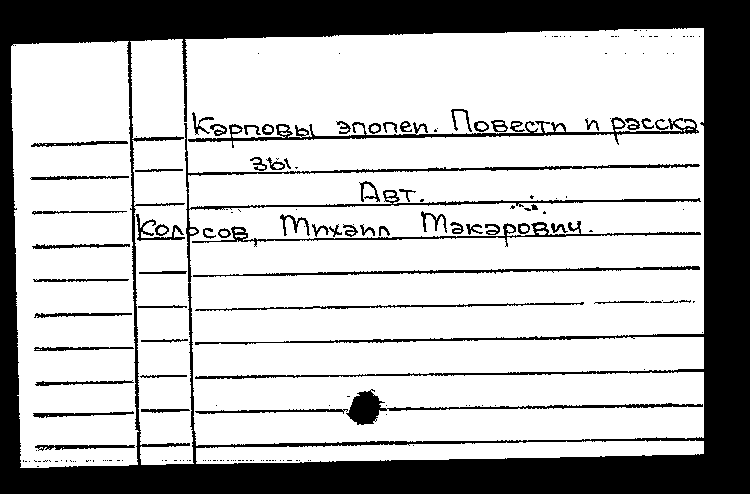 Карповы эпопеи. Повести и расска-
зы.
Авт.
Колосов, Михаил Макарович.